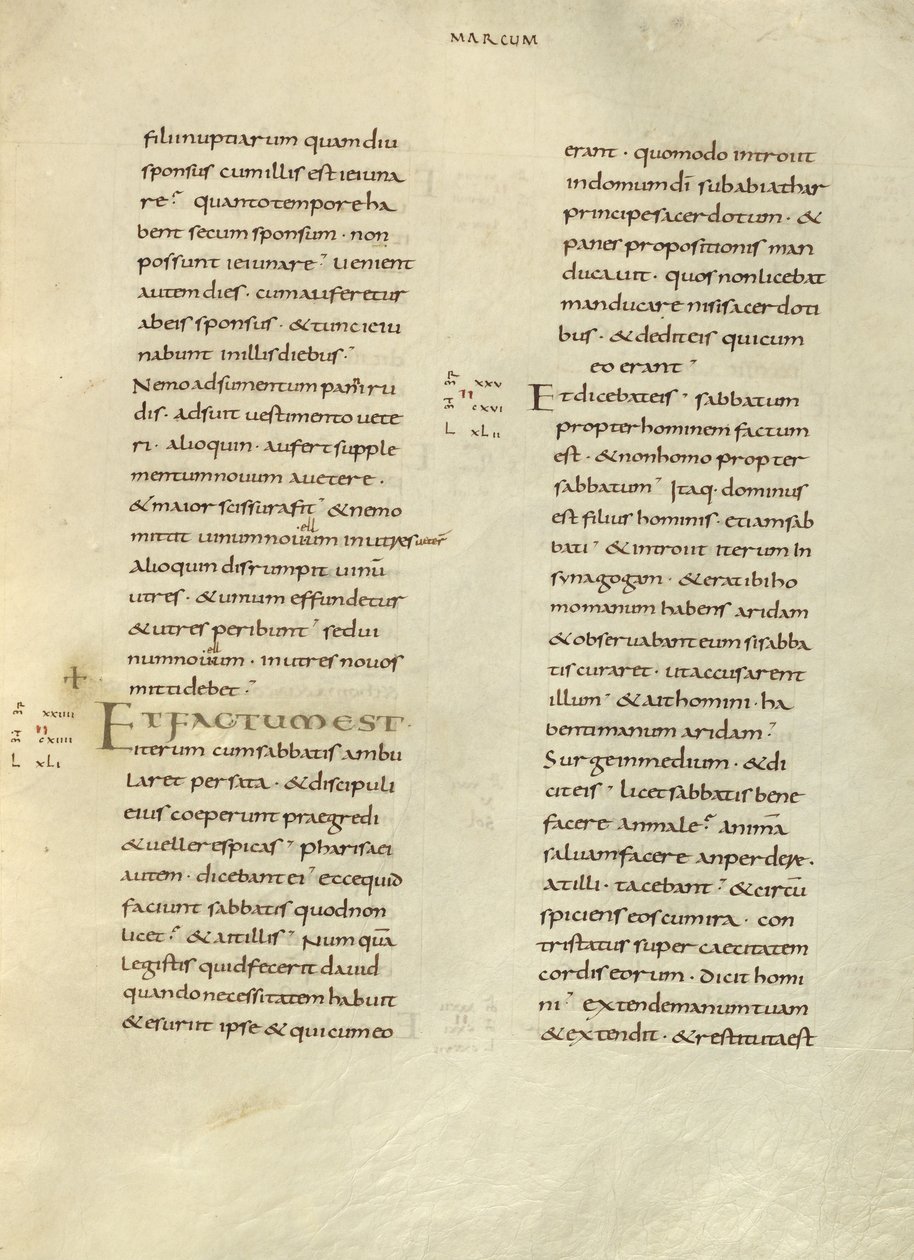 MARCUM
filii nuptiarum quamdiu
sponsus cum illis est ieiuna
re? quanto tempore ha
bent secum sponsum · non
possunt ieiunare ; Uenient
autem dies · cum auferetur
ab eis sponsus · & tunc ieiu
nabunt in illis diebus ;
Nemo adsumentum panni ru
dis · adsuit uestimento uete
ri · alioquin · aufert supple
mentum nouum a uetere ·
& maior scissura fit ; & nemo
mittit uinum nouum in utres ueteres
Alioquin disrumpit uinū
utres · & uinum effundetur
& utres peribunt ; sed ui
num nouum · in utres nouos
mitti debet ;
ET FACTUM EST ·
iterum cum sabbatis ambu
laret per sata · & discipuli
eius coeperunt praegredi
& uellere spicas ; pharisaei
autem · dicebant ei ; ecce quid
faciunt sabbatis quod non
licet ? & ait illis ; Numquā
legistis quid fecerit dauid
quando necessitatem habuit
& esuriit ipse & qui cum eo
mr xxiiii
mt cxiiii
L xLi
erant · quomodo introiit
in domum dī sub abiathar
principe sacerdotum · &
panes propositionis man
ducauit · quos non licebat
manducare nisi sacerdoti
bus · & dedit eis qui cum
eo erant ;
mr xxv
mt cxvi
L xLii
Et dicebat eis ; sabbatum
propter hominem factum
est · & non homo propter
sabbatum ; Itaq· dominus
est filius hominis · etiam sab
bati ; & introiit iterum in
synagogam · & erat ibi ho
mo manum habens aridam
& obseruabant eum si sabba
tis curaret · ut accusarent
illum ; & ait homini · ha
benti manum aridam ;
Surge in medium · & di
cit eis ; licet sabbatis bene
facere an male ? animā
saluam facere an perdere ·
at illi · tacebant ; & circū
spiciens eos cum ira · con
tristatus super caecitatem
cordis eorum · Dicit homi
ni ; extende manum tuam
& extendit · & restituta est